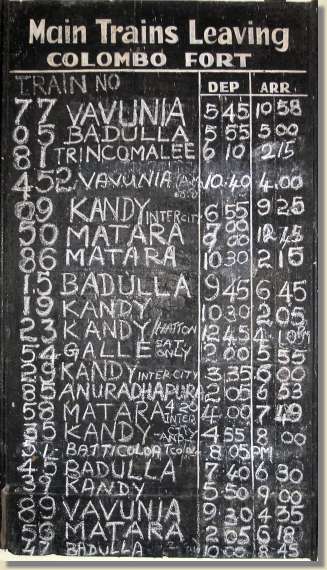 Main Trains Leaving
COLOMBO FORT
TRAIN NO DEP ARR.
77 VAVUNIA 5 45 10 58
05 BADULLA 5 55 5 00
81 TRINCOMALEE 6 10 2 15
452 VAVUNIA 10.40 4.00
09 KANDY INTERCITY 6 55 9 25
50 MATARA 7 00
86 MATARA 10 30 2 15
15 BADULLA 9 45 6 45
19 KANDY 10 30 2 05
23 KANDY /HATTON 12 45 4.10
54 GALLE SAT ONLY 2 00 5 55
KANDY INTERCITY 3 35 6 00
85 ANURADHAPURA 2 05 6 53
58 MATARA INTER 4 00 7 49
35 KANDY 4 55 8 00
BATTICOLOA 8 05 PM
45 BADULLA 7 40 6 30
39 KANDY 5 50 9 00
89 VAVUNIA 9 30 4 35
56 MATARA 2 05 6 18
47 BADULLA 10 00 8 45